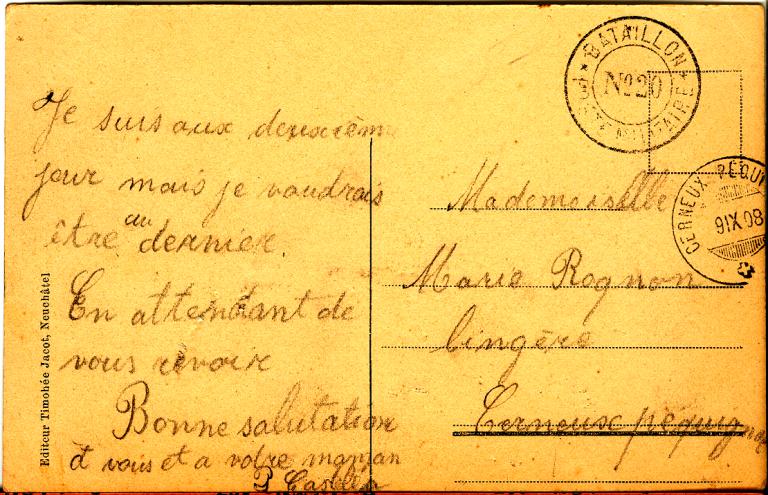 Je suis aux deuxièm
jour mais je voudrais
être au dernier
En attendant de
vous revoir
Bonne salutation
à vous et a votre maman
Editeur Timothée Jacot, Neuchâtel
BATAILLON
No 20
POSTE MILITAIRE
CERNEUX PEQUI
9 IX 08
Mademoiselle
Marie Rognon
lingère
Cerneux péquignot